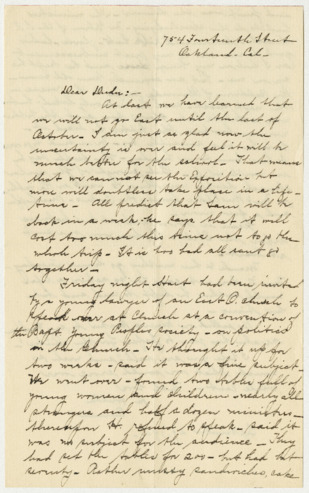 754 Fourteenth Street
Oakland. Cal -
Dear Dudu: -
At last we have learned that
we will not go East until the last of
October - I am just as glad now the
uncertainty is over and feel it will be
much better for the school. - That means
that we cannot see the Exposition - but
more will doubtless take place in a life-
time - All predict that Sam will be
back in a week - he says that it will
cost too much this time not to go the
whole trip - It is too bad all can't go
together -
Friday night Hart had been invited
by a young lawyer of an East O. church to
speak at Church at a convention of
the Bapt. Young Peoples society - on politics
in the Church - He thought it up for
two weeks - said it was a fine subject
We went over - found two tables full of
young women and children - nearly all
strangers and half a dozen ministers -
thereupon H. refused to speak - said it
was no subject for the audience - They
had set the tables for 200 - but had but
seventy - Rather mussy sandwiches, cake